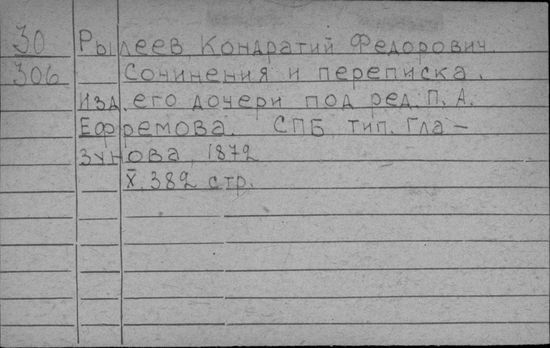 30 Рылеев Кондратий Федорович.
306 Сочинения и переписка.
Изд. его дочери под ред. П. А.
Ефремова. СПБ тип. Гла-
зунова, 1872
X, 382 стр.